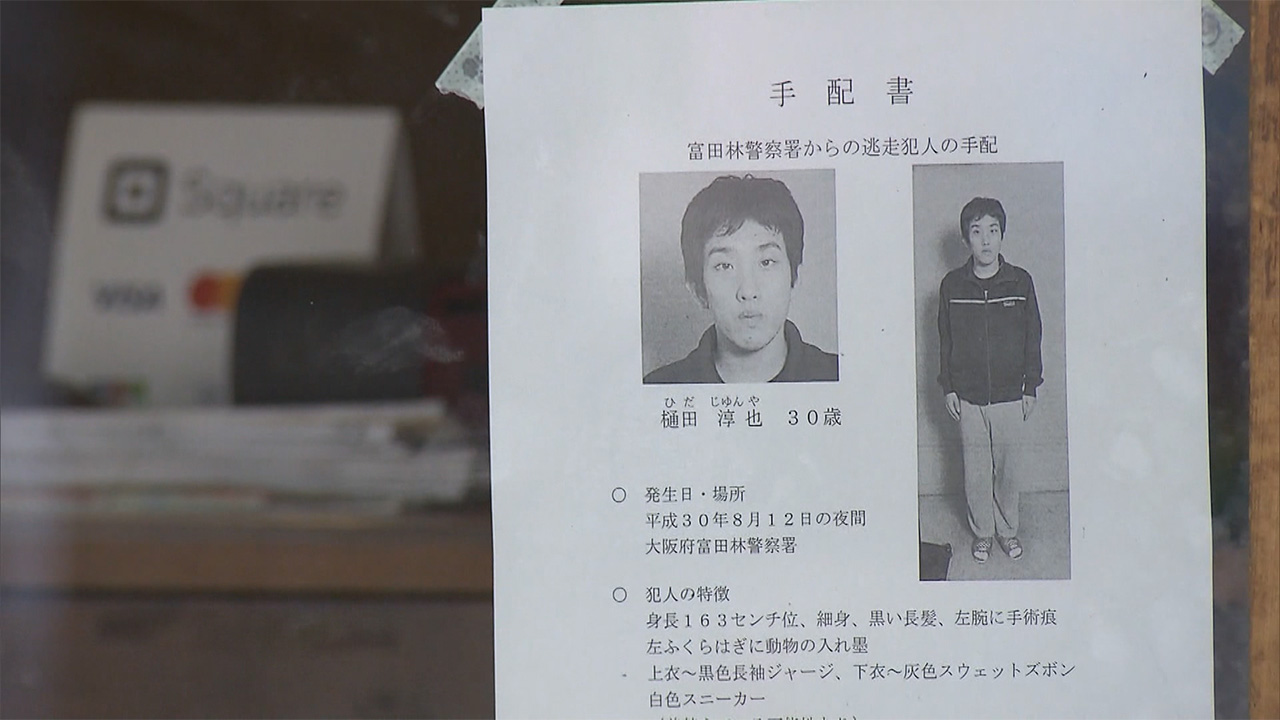 Square
VISA
mastercard
手配書
富田林警察署からの逃走犯人の手配
ひだ じゅんや
樋田 淳也 30歳
○ 発生日・場所
平成30年8月12日の夜間
大阪府富田林警察署
○ 犯人の特徴
身長163センチ位、細身、黒い長髪、左腕に手術痕
左ふくらはぎに動物の入れ墨
上衣～黒色長袖ジャージ、下衣～灰色スウェットズボン
白色スニーカー